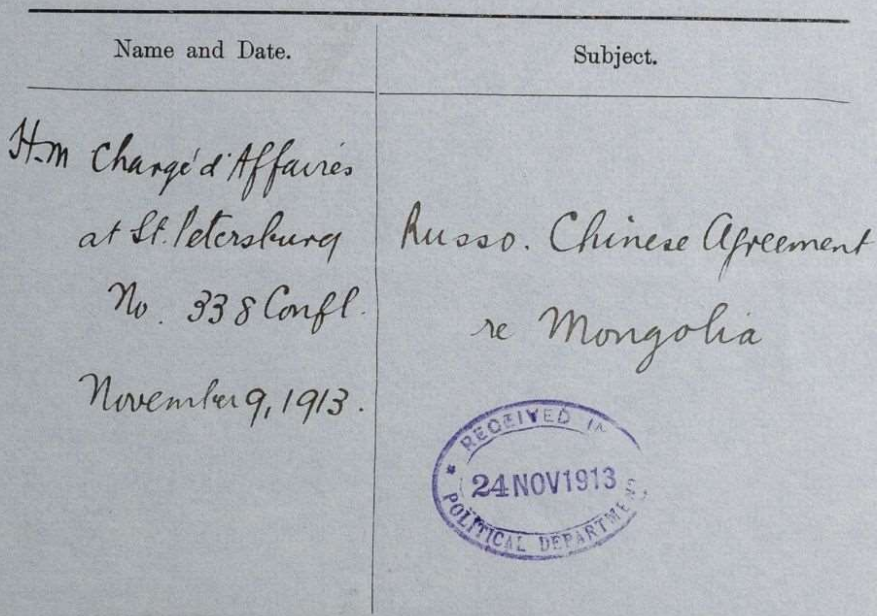 Name and Date.
Subject.
H.M Chargé d'Affaires
at St. Petersburg
No. 338 Confl.
November 9, 1913.
Russo. Chinese Agreement
re Mongolia
RECEIVED IN
* 24 NOV 1913
POLITICAL DEPARTMENT